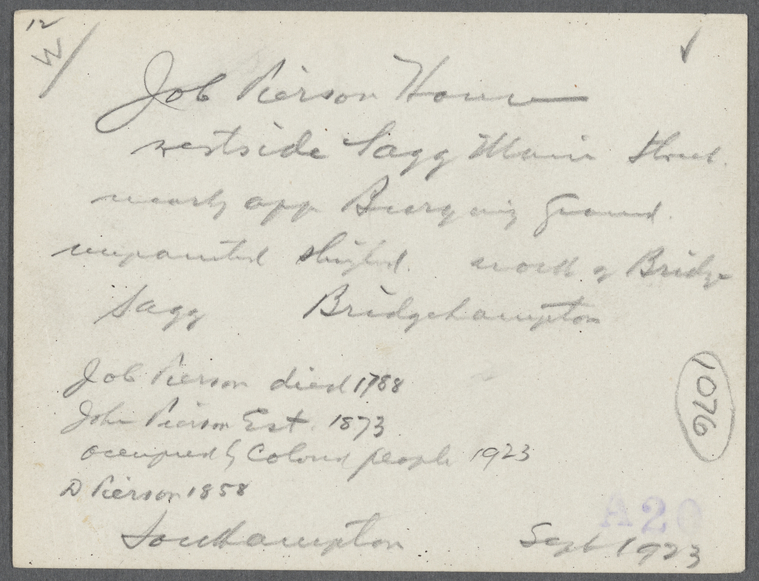 12
W
Job Pierson House
westside Sagg Main Street.
nearly opp. Burying Ground.
unpainted shingled. north of Bridge
Sagg Bridgehampton
Job Pierson died 1788
John Pierson Est. 1873
occupied by Colored people 1923
D Pierson 1858
Southampton Sept 1923
1076